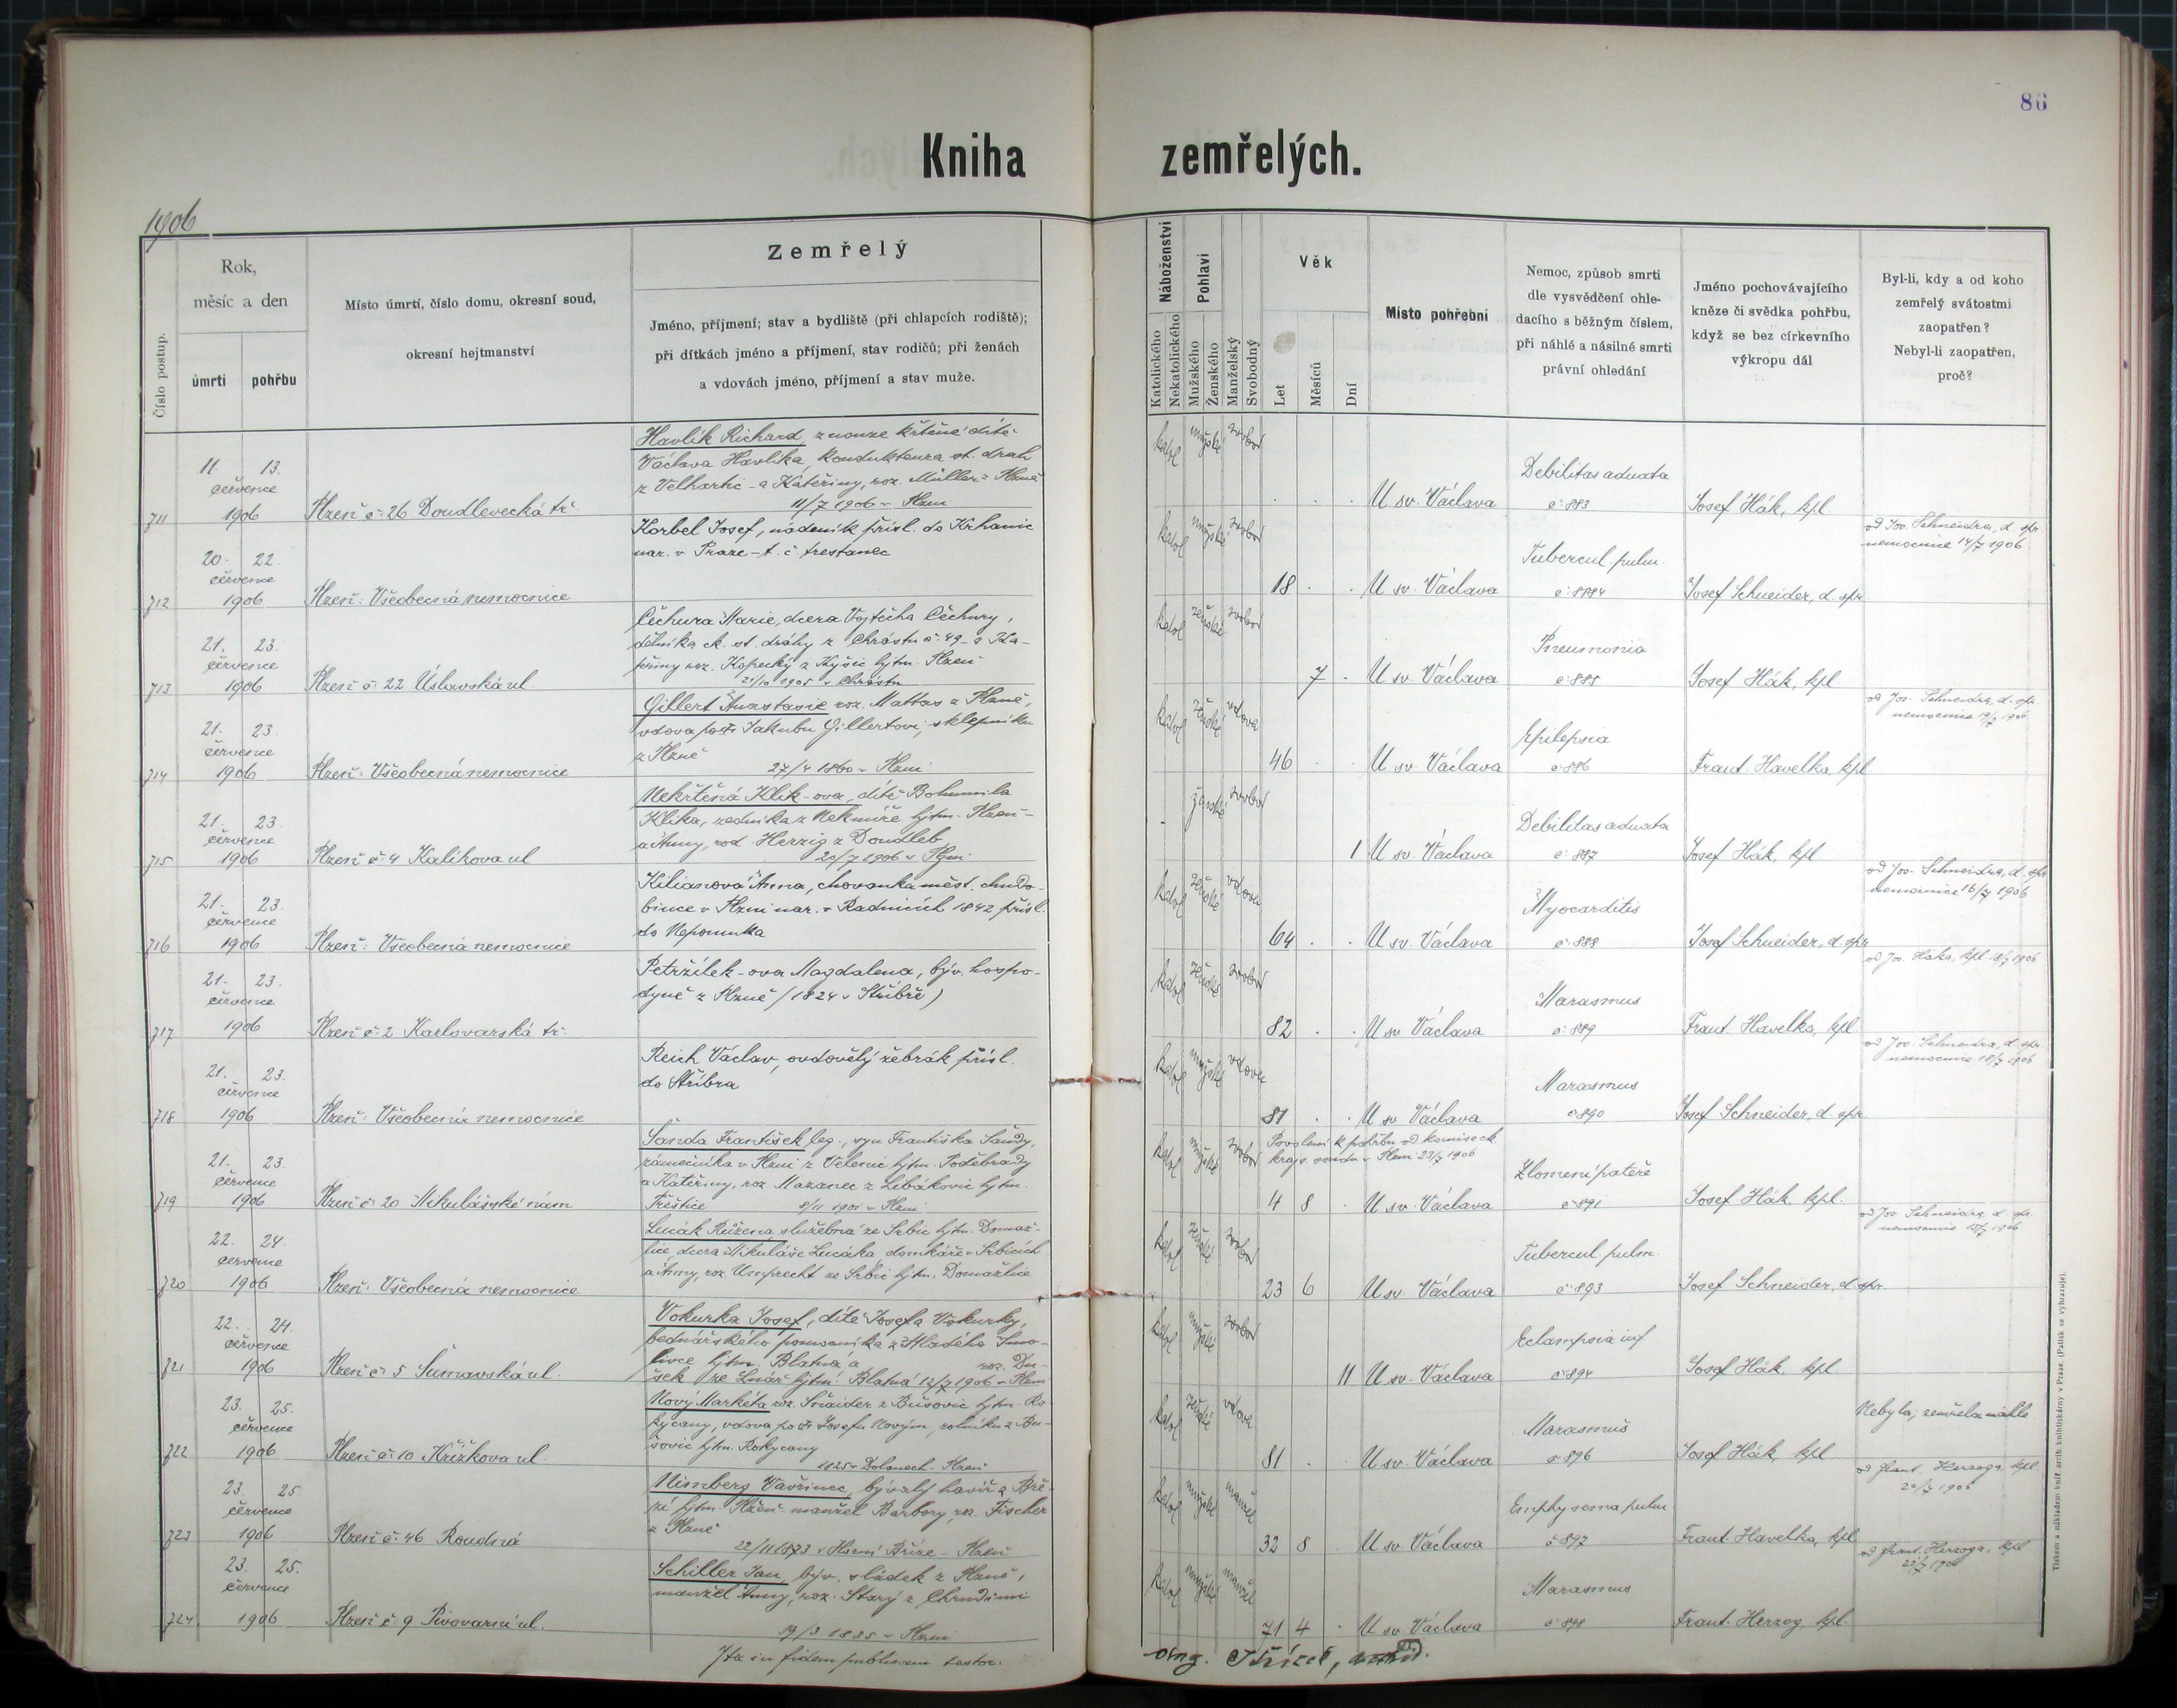 86
Kniha zemřelých.
1906
Číslo postup.
Rok,
měsíc a den
úmrtí
pohřbu
Místo úmrtí, číslo domu, okresní soud,
okresní hejtmanství
Zemřelý
Jméno, příjmení; stav a bydliště (při chlapcích rodiště);
při dítkách jméno a příjmení, stav rodičů; při ženách
a vdovách jméno, příjmení a stav muže.
Náboženství
Katolického
Nekatolického
Pohlaví
Mužského
Ženského
Manželský
Svobodný
Věk
Let
Měsíců
Dní
Místo pohřební
Nemoc, způsob smrti
dle vysvědčení ohle-
dacího s běžným číslem,
při náhlé a násilné smrti
právní ohledání
Jméno pochovávajícího
kněze či svědka pohřbu,
když se bez církevního
výkropu dál
Byl-li, kdy a od koho
zemřelý svátostmi
zaopatřen?
Nebyl-li zaopatřen,
proč?
711
11. 13.
července
1906
Plzeň č. 26 Doudlevecká tř.
Havlík Richard, z nouze křtěné dítě
Václava Havlíka, kondukteura st. drah
z Velhartic a Kateřiny, roz. Müller z Plzně
11/7 1906 v Plzni
katol mužské svobod
U sv. Václava
Debilitas adnata
č. 883
Josef Hák, kpl
712
20. 22.
července
1906
Plzeň: Všeobecná nemocnice
Korbel Josef, nádeník přísl. do Krhanic
nar. v Praze - t. č. trestanec
katol mužské svobod
18
U sv. Václava
Tubercul. pulm.
č. 884
Josef Schneider, d. spr
od Jos. Schneidra, d. spr
nemocnice 14/7 1906
713
21. 23.
července
1906
Plzeň č. 22 Úslavská ul.
Čechura Marie, dcera Vojtěcha Čechury,
dělníka ck. st. dráhy z Chrástu č. 49 a Ka-
teřiny roz. Kopecký z Kyšic hjtm. Plzeň
21/10 1905 v Chrástu
katol ženské svobod
7
U sv. Václava
Pneumonia
č. 885
Josef Hák, kpl
714
21. 23.
července
1906
Plzeň: Všeobecná nemocnice
Gillert Anastasie roz. Mattas z Plzně,
vdova po † Jakubu Gillertovi, sklepníku
z Plzně
27/4 1860 v Plzni
katol ženské vdova
46
U sv. Václava
Epilepsia
č. 886
Frant. Havelka, kpl
od Jos. Schneidra, d. spr.
nemocnice 19/7 1906
715
21. 23.
července
1906
Plzeň č. 4 Kalikova ul
Nekřtěná Klik-ova, dítě Bohumila
Klika, zedníka z Nekmíře hjtm. Plzeň
a Anny, rod. Herzig z Doudleb
20/7 1906 v Plzni
ženské svobod
1
U sv. Václava
Debilitas adnata
č. 887
Josef Hák, kpl
716
21. 23.
července
1906
Plzeň: Všeobecná nemocnice
Kilianová Anna, chovanka měst. chudo-
bince v Plzni nar. v Radnicích 1842 přísl.
do Nepomuka
katol ženské vdova
64
U sv. Václava
Myocarditis
č. 888
Josef Schneider, d. spr
od Jos. Schneidra, d. spr
nemocnice 16/7 1906
717
21. 23.
července
1906
Plzeň č. 2 Karlovarská tř.
Petržílek-ova Magdalena, býv. hospo-
dyně z Plzně (1824 v Stříbře)
katol ženské svobod
82
U sv. Václava
Marasmus
č. 889
Frant. Havelka, kpl
od Jos. Háka, kpl 18/7 1906
718
21. 23.
července
1906
Plzeň: Všeobecná nemocnice
Reich Václav, ovdovělý žebrák přísl.
do Stříbra
katol mužské vdovec
81
U sv. Václava
Marasmus
č. 890
Josef Schneider, d. spr
od Jos. Schneidra, d. spr.
nemocnice 18/7 1906
719
21. 23.
července
1906
Plzeň č. 20 Mikulášské nám
Šanda František leg., syn Františka Šandy,
zámečníka v Plzni z Velenic hjtm. Poděbrady
a Kateřiny, roz. Mazanec z Libákovic hjtm.
Přeštice 8/11 1901 v Plzni
katol mužské svobod
Povolení k pohřbu od komise ck.
kraj. soudu v Plzni 23/7 1906
4 8
U sv. Václava
Zlomení páteře
č. 891
Josef Hák, kpl.
720
22. 24.
července
1906
Plzeň: Všeobecná nemocnice
Lucák Růžena, služebná ze Srbic hjtm. Domaž-
lice, dcera Mikuláše Lucáka domkáře v Srbicích
a Anny, roz. Umprecht ze Srbic hjtm. Domažlice
katol ženské svobod
23 6
U sv. Václava
Tubercul. pulm.
č. 893
Josef Schneider, d. spr.
od Jos. Schneidra, d. spr.
nemocnice 1906
721
22. 24.
července
1906
Plzeň č. 5 Šumavská ul.
Vokurka Josef, dítě Josefa Vokurky,
bednářského pomocníka z Mladého Smo-
livce hjtm. Blatná a roz. Du-
šek ze Lnář hjtm. Blatná 12/7 1906 v Plzni
katol mužské svobod
11
U sv. Václava
Eclampsia inf
č. 894
Josef Hák, kpl.
722
23. 25.
července
1906
Plzeň č. 10 Křížkova ul.
Nový Markéta roz. Šnaider z Bušovic hjtm. Ro-
kycany, vdova po † Josefu Novým, rolníku z Bu-
šovic hjtm. Rokycany
1825 v Dolanech - Plzeň
katol ženské vdova
81
U sv. Václava
Marasmus
č. 896
Josef Hák, kpl
Nebyla; zemřela náhle
723
23. 25.
července
1906
Plzeň č. 46 Roudná
Nimberg Vavřinec, bývalý havíř z Bří-
zí hjtm. Plzeň manžel Barbory roz. Fischer
z Plzně
22/11 1873 v Horní Bříze - Plzeň
katol mužské manžel
32 8
U sv. Václava
Emphysema pulm
č. 897
Frant. Havelka, kpl
od Frant. Herzoga, kpl.
20/7 1906
724.
23. 25.
července
1906
Plzeň č. 9 Pivovarní ul.
Schiller Jan, býv. sládek z Plzně,
manžel Anny, roz. Starý z Chrudimi
19/3 1835 v Plzni
katol mužské manžel
71 4
U sv. Václava
Marasmus
č. 898
Frant. Herzog, kpl.
od Frant. Herzoga, kpl
1906
Ita in fidem publicam testor.
Tiskem a nákladem kníž. arcib. knihtiskárny v Praze. (Patisk se vyhrazuje).